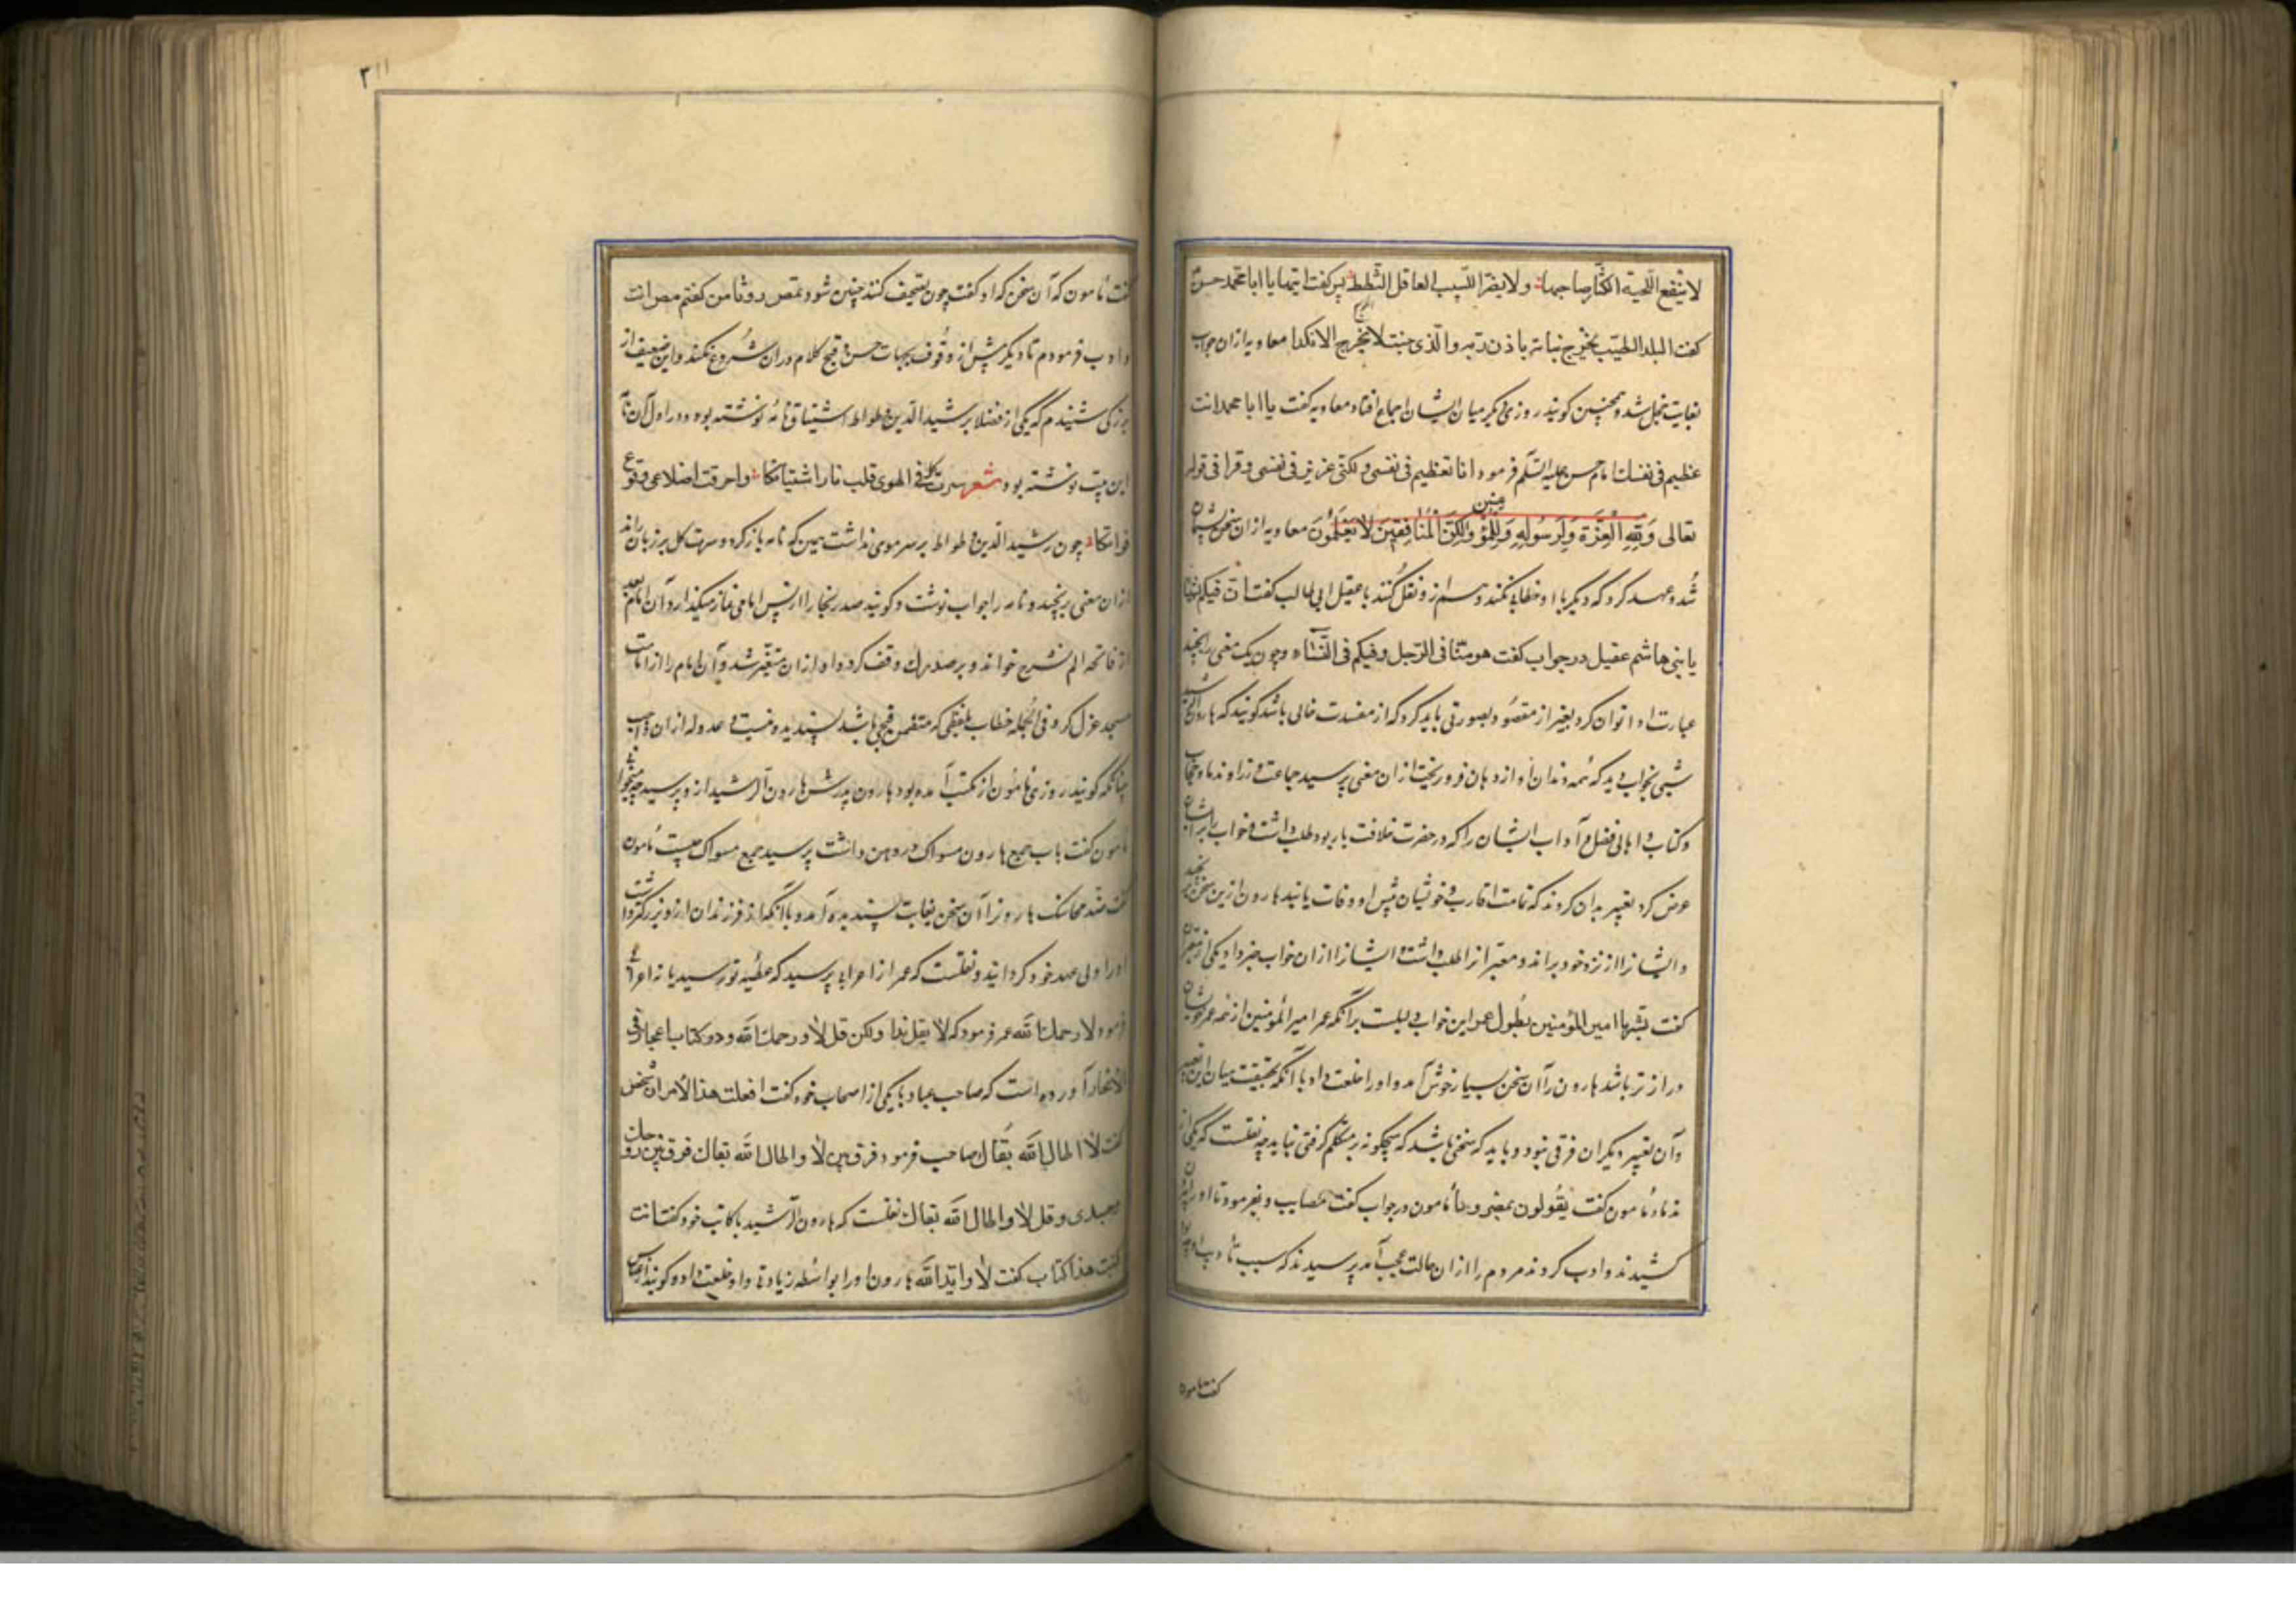 لا ینفع اللحیة الکثار صاحبها ولا یضر اللبیب العاقل الثطط پس کفت ایتها یا ابا محمد حسن
کفت البلد الطیب یخرج نباته باذن ربه والذی خبث لا یخرج الا نکدا معاویه ازان جواب
بغایت خجل شد و همچنین کویند روزی دیکر میان ایشان اجماع افتاد معاویه کفت یا ابا محمد انت
عظیم فی نفسک امام حسن علیه السلم فرمود انا تعظیم فی نفسی ولکنی عزیز فی نفسی و قرا فی قوله
تعالی وَلِلّهِ الْعِزَّة وَلِرَسُولِهِ وَلِلْمُؤمنین وَلکِنَّ الْمُنَافِقِینَ لایَعْلَمُونَ معاویه ازان سخن پشیمان
شد و عهد کرد که دیکر با او خطابی نکند و هم ازو نقل کنند با عقیل ابی طالب کفت ان فیکم
یا بنی هاشم عقیل در جواب کفت هو منا فی الرجل وفیکم فی النساء و چون یک معنی را بچند
عبارت ادا توان کرد بغیر از مقصود بصورتی باید کرد که از مفسدت خالی باشد کویند که هارون الرشید
شبی بخواب دید که همه دندان او از دهان فرو ریخت ازان معنی پرسید جماعت وزرا و ندما و حجاب
و کتاب و اهالی فضل و آداب ایشان را که در حضرت خلافت بار بود طلب داشت و خواب برایشان
عرض کرد تعبیر بدان کردند که تمامت اقارب و خویشان پیش او وفات یابند هارون ازین سخن برنجید
و ایشانرا از نزد خود براند و معتبر انرا طلب داشت و ایشانرا ازان خواب خبر داد یکی از معبران
کفت بشرها امیر المؤمنین بطول عمر این خواب دلیلست برآنکه عمر امیر المؤمنین از همه عمر خویشان
دراز تر باشد هارون را آن سخن بسیار خوش آمد و اورا خلعت داد با آنکه بحقیقت میان این تعبیر
و آن تعبیر دیکران فرقی نبود و باید که سخنی باشد که هیچکونه بر متکلم کرفتی نباید چه نقلست که یکی از
ندماء مامون کفت یقولون بمصر وبا مامون در جواب کفت مصایب و بفرمود تا اورا
کشیدند و ادب کردند مردم را ازان حالت عجب آمد پرسیدند که سبب تأدیب او چه بود
کفت مامون
٣
کفت مامون که آن سخن که او کفت چون تصحیف کنند چنین شود من کفتم مص انت
و ادب فرمودم تا دیکر پیش از وقوف بجهات حسن و قبح کلام دران شروع نکند و این ضعیف از
بزرکی شنیدم که یکی از فضلا بر شید الدین وطواط اشتیاق نامه نوشته بود و در اول آن نامه
این بیت نوشته بود شعر سرت کل فی الهوی قلب نار اشتیاقکا واحرقت اضلاعی وقوع
فراقکا چون رشید الدین وطواط بر سر موی نداشت همین که نامه باز کرد و سرت کل بر زبان راند
ازان معنی برنجید و نامه را جواب نوشت و کویند صدر بخارا از پس امامی نماز میکذارد آن امام بعد
از فاتحه الم نشرح خواند و بر صدرک وقف کرد و او ازان متغیر شد و آن امام را از امامت
مسجد عزل کرد و فی الجمله خطاب بلفظی که متضمن قبحی باشد پسندیده نیست و عدول ازان واجب
چنانکه کویند روزی مامون از مکتب آمده بود هارون پدرش هارون الرشید ازو پرسید چه میخوانی
مامون کفت باب جمع هارون مسواک در دهن داشت پرسید جمع مسواک چیست مامون
کفت ضد محاسنک هارونرا آن سخن بغایت پسندیده آمد و با آنکه از فرزندان ازو بزرکتر داشت
اورا ولی عهد خود کردانید و نقلست که عمر از اعرابی پرسید که عطیه تو رسید یا نه اعرابی
فرمود لا رحمک الله عمر فرمود که لا یقل هذا ولکن قل لا ورحمک الله و در کتاب اعجاز فی
الایجاز آورده است که صاحب عباد با یکی از اصحاب خود کفت افعلت هذا الامر آن شخص
کفت لا اطال الله بقاک صاحب فرمود فرق بین لا واطال الله بقاک فرق بین
وعبدی وقل لا واطال الله بقاک نقلست که هارون الرشید با کاتب خود کفت انت
کتبت هذا کتاب کفت لا واید الله هارون اورا بواسطه زیادتی واو خلعت داد و کویند